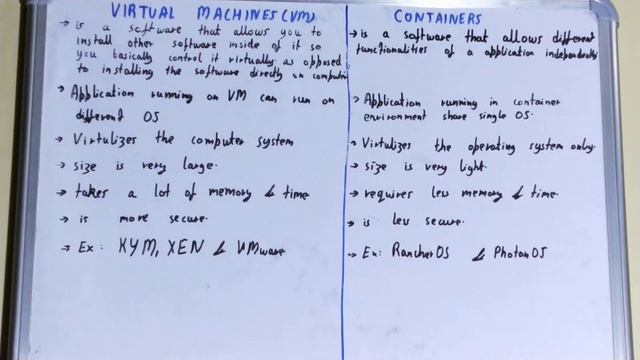 VIRTUAL MACHINES(VM)
→ is a software that allows you to
install other software inside of it so
you basically control it virtually as opposed
to installing the software directly on computer
→ Application running on VM can run on
different OS
→ Virtulizes the computer system
→ size is very large.
→ takes a lot of memory & time
→ is more secure.
→ Ex: KYM, XEN & VMware
CONTAINERS
→ is a software that allows different
functionalities of a application independently
→ Application running in container
environment share single OS.
→ Virtulizes the operating system only.
→ size is very light.
→ requires less memory & time.
→ is less secure.
→ Ex: RancherOS & PhotonOS